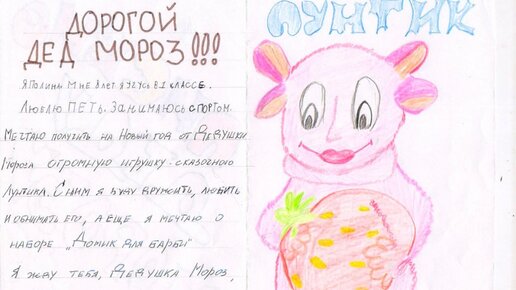 ДОРОГОЙ
ДЕД МОРОЗ!!!
Я ПОЛИНА МНЕ 8 ЛЕТ Я УЧУСЬ В 1 КЛАССЕ.
ЛЮБЛЮ ПЕТЬ. ЗАНИМАЮСЬ СПОРТОМ.
МЕЧТАЮ ПОЛУЧИТЬ НА НОВЫЙ ГОД ОТ ДЕДУШКИ
МОРОЗА ОГРОМНУЮ ИГРУШКУ-СКАЗОЧНОГО
ЛУНТИКА. С НИМ Я БУДУ ДРУЖИТЬ, ЛЮБИТЬ
И ОБНИМАТЬ ЕГО, А ЕЩЕ Я МЕЧТАЮ О
НАБОРЕ „ДОМИК ДЛЯ БАРБИ"
Я ЖДУ ТЕБЯ, ДЕДУШКА МОРОЗ,
ЛУНТИК